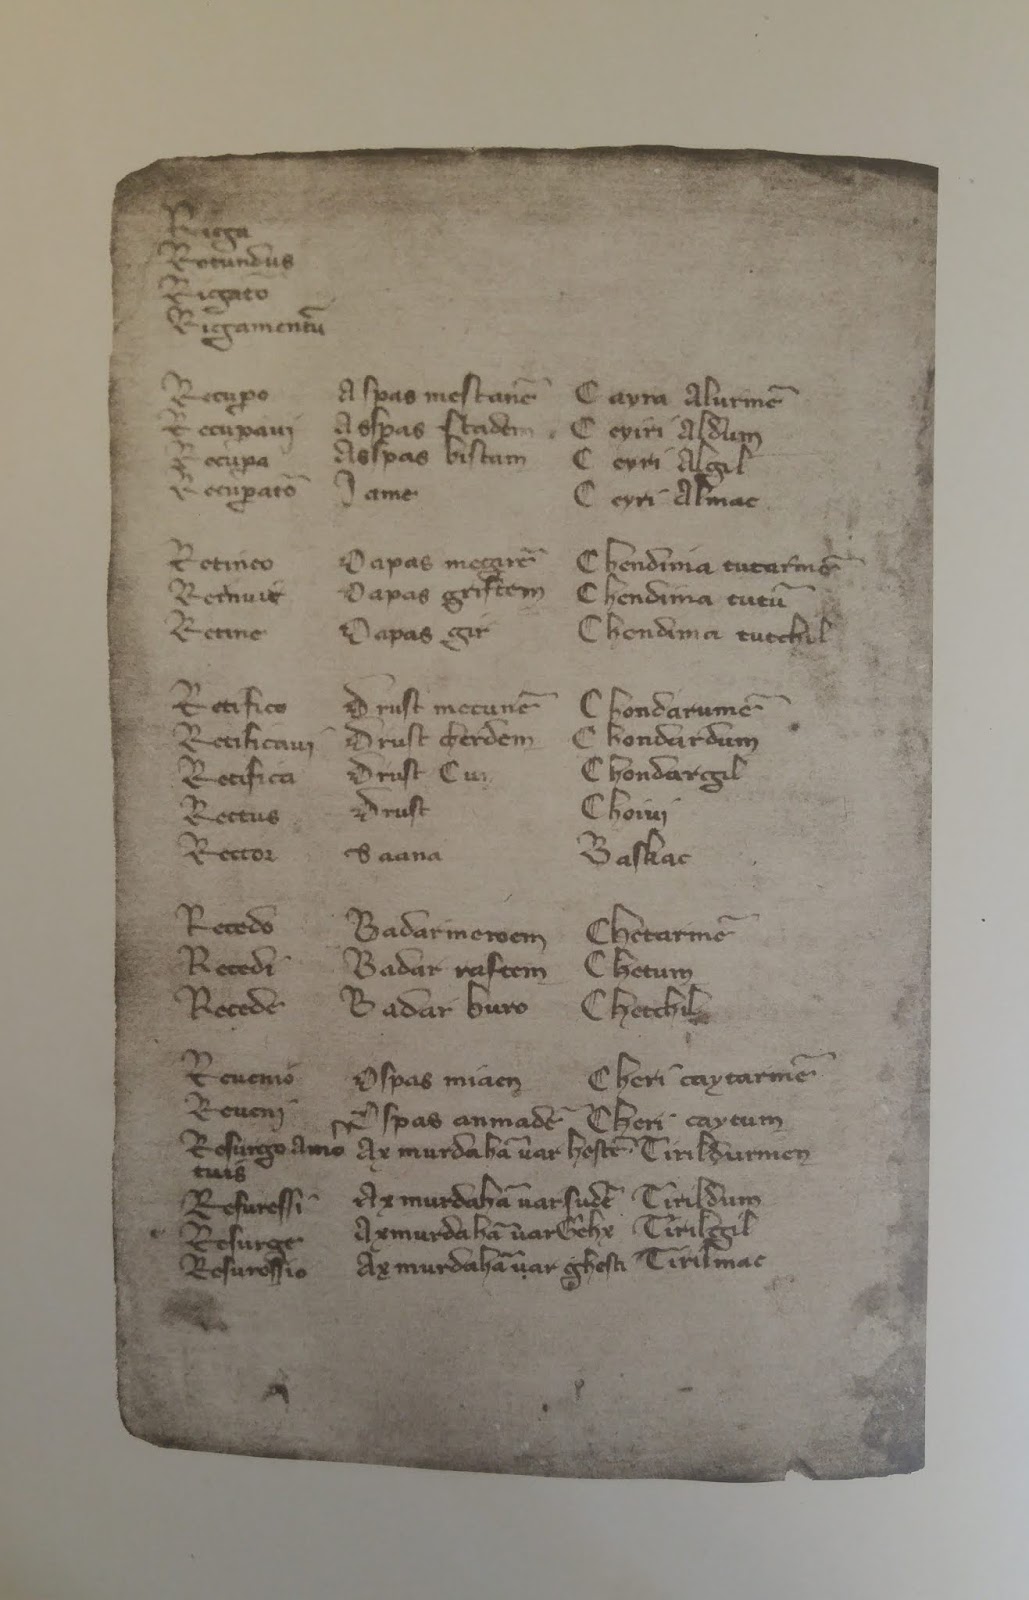 Ricga
Rotundus
Rigatō
Rigamentū
Recupo Aspas mestanē Cayra Alurmē
Recupaui Asspas stadem Ceyiri Aldum
Recupa Asspas bistam Ceyri Algil
Recupatō Jame Ceyri Almac
Retineo Oapas megirē Chendinia tutarmē
Retinuit Oapas griftem Chendinia tutū
Retine Oapas gir Chendima tutchil
Retifico Drust mecunē Chondarumē
Retificaui Drust cherdem Chondardum
Retifica Drust Cun Chondargil
Rectus Drust Choiui
Rector Saana Baskac
Recedo Badarmeroem Chetarmē
Recedi Badar raftem Chetum
Recede Badar buro Chetchil
Reuenio Ospas miaen Cheri caytarmē
Reueni Ospas anmadē Cheri caytum
Resurgo Amo Ax murdahā uar hestē Tirildurmen
tuis
Resuressi Ax murdahā uar sudē Tirildum
Resurge Axmurdahā uar Ghehx Tirilgil
Resurossio Ax murdahā uar ghesti Tirilmac